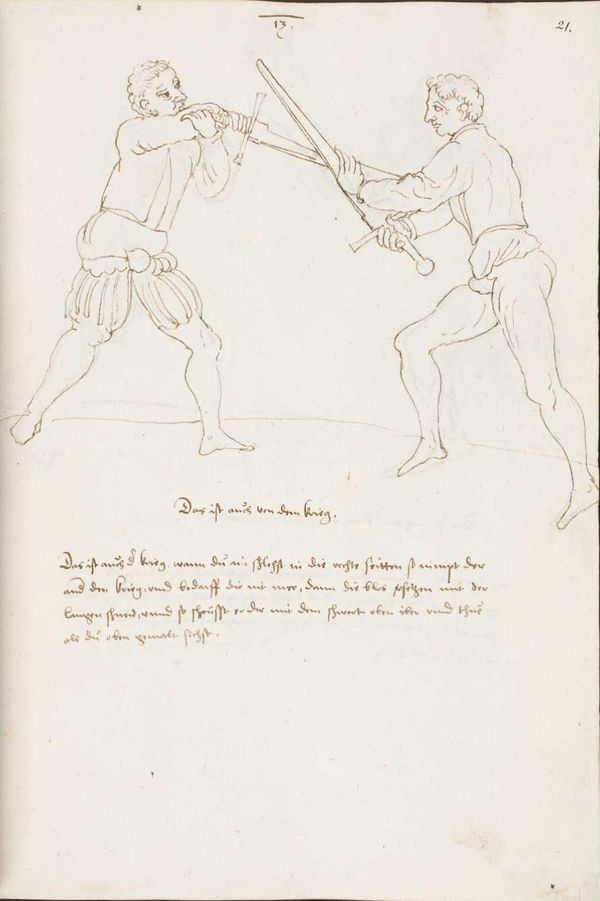 13.
21.
Das ist auch von dem krieg.
Das ist auch d krieg, wann du im schlechst in die rechte seitten so nimpt der
and den krieg, und bedarff die nit mer, dann die blos setzen mit der
langen schneid, unnd so scheüsst er dir mit dem schwert oben iber unnd thus
als du oben gemalt sichst.